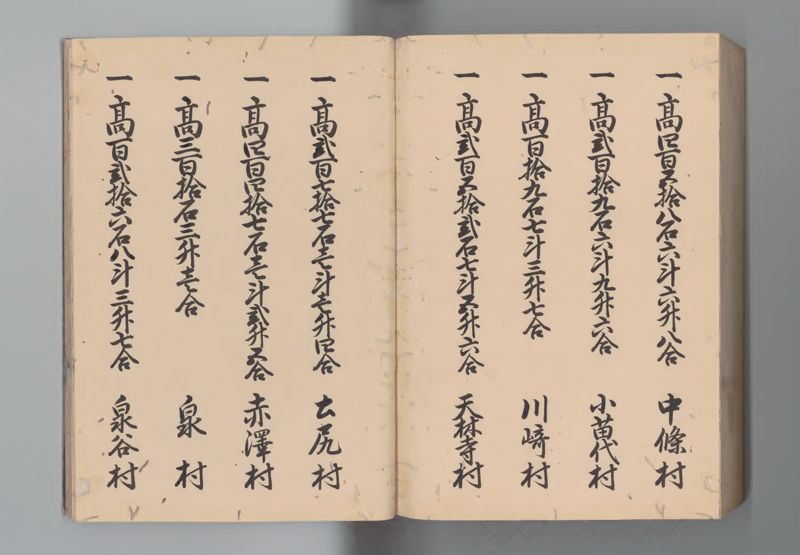 一 高四百五拾八石六斗六升八合 中條村
一 高弐百拾九石六斗九升六合 小苗代村
一 高百拾九石七斗三升七合 川﨑村
一 高弐百五拾弐石七斗五升六合 天林寺村
一 高弐百七拾七石壱斗壱升四合 土尻村
一 高四百四拾七石壱斗弐升五合 赤澤村
一 高三百拾石三升壱合 泉村
一 高百弐拾六石八斗三升七合 泉谷村